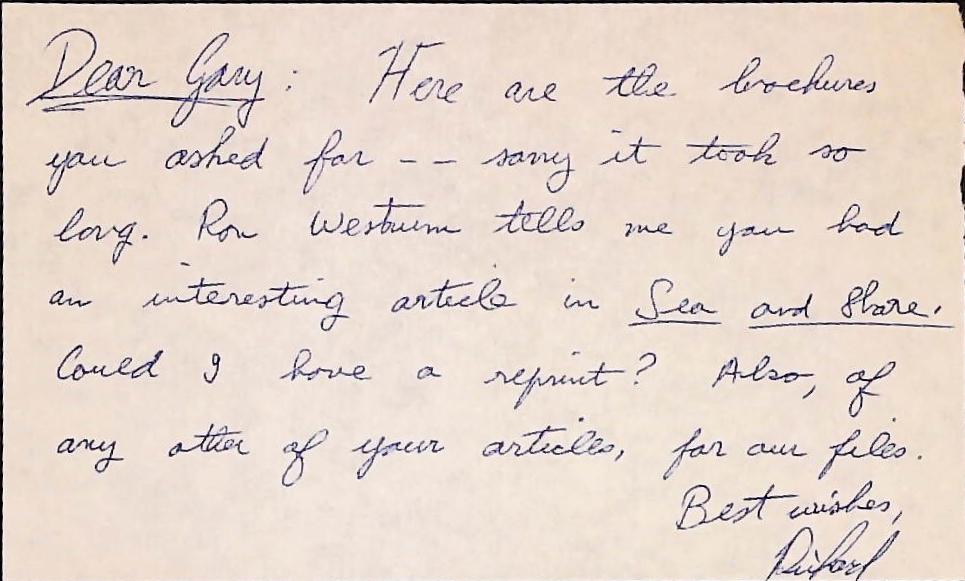 Dear Gary: Here are the brochures
you asked for -- sorry it took so
long. Ron Westrum tells me you had
an interesting article in Sea and Shore.
Could I have a reprint? Also, of
any other of your articles, for our files.
Best wishes,
Richard